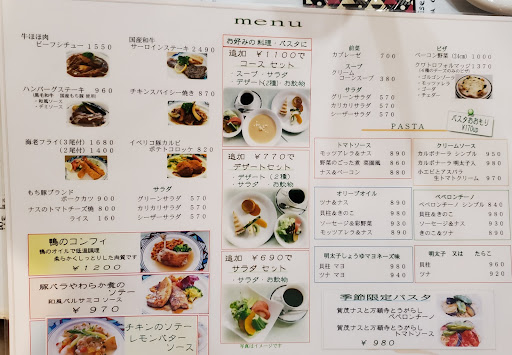 menu
牛ほほ肉
ビーフシチュー 1550
国産和牛
サーロインステーキ 2490
ハンバーグステーキ 960
(黒毛和牛 国産もち豚 使用)
・和風ソース
・デミソース
チキンスパイシー焼き 870
海老フライ(3尾付) 1680
(2尾付) 1400
イベリコ豚カルビ
ポテトコロッケ 820
もち豚ブランド
ポークカツ 900
ナスのトマトチーズ焼 800
ライス 160
サラダ
グリーンサラダ 570
カリカリサラダ 570
シーザーサラダ 570
鴨のコンフィ
鴨のオイルで低温調理
柔らかくしっとりした肉質です
¥1200
豚バラやわらか煮の
ソテー
和風バルサミコソース
¥ 970
チキンのソテー
レモンバター
ソース
お好みの料理・パスタに
追加 ¥1100で
コースセット
・スープ・サラダ
・デザート(2種)・お飲物
追加 ¥770で
デザートセット
・デザート(2種)
・サラダ・お飲物
追加 ¥690で
サラダセット
・サラダ・お飲物
写真はイメージです
前菜
カプレーゼ 700
スープ
クリーム
コーンスープ 380
サラダ
グリーンサラダ 570
カリカリサラダ 570
シーザーサラダ 570
ピザ
ベーコン野菜 (24cm) 1000
クワトロフォルマッジ 1370
(4種チーズのみのピザ)
・ゴルゴンゾーラ
・モッツァレラ
・ゴーダ
・チェダー
パスタおおもり
¥170up
PASTA
トマトソース
モッツアレラ&ナス 850
野菜のごった煮 菜園風 860
ナス&ベーコン 880
クリームソース
カルボナーラ シンプル 950
カルボナーラ 明太子入 950
小エビとアスパラ
生トマトクリーム 970
オリーブオイル
ツナ&ナス 890
貝柱&きのこ 980
ソーセージ&彩野菜 930
モッツアレラ&ナス 940
ペペロンチーノ
ペペロンチーノ シンプル 840
貝柱&きのこ 980
ソーセージ&ナス 930
きのこ&ツナ 920
明太子しょうゆマヨネーズ味
貝柱 マヨ 980
ツナ マヨ 940
明太子 又は たらこ
貝柱 960
ツナ 920
季節限定パスタ
賀茂ナスと万願寺とうがらし
ペペロンチーノ
賀茂ナスと万願寺とうがらし
トマトソース
¥ 980